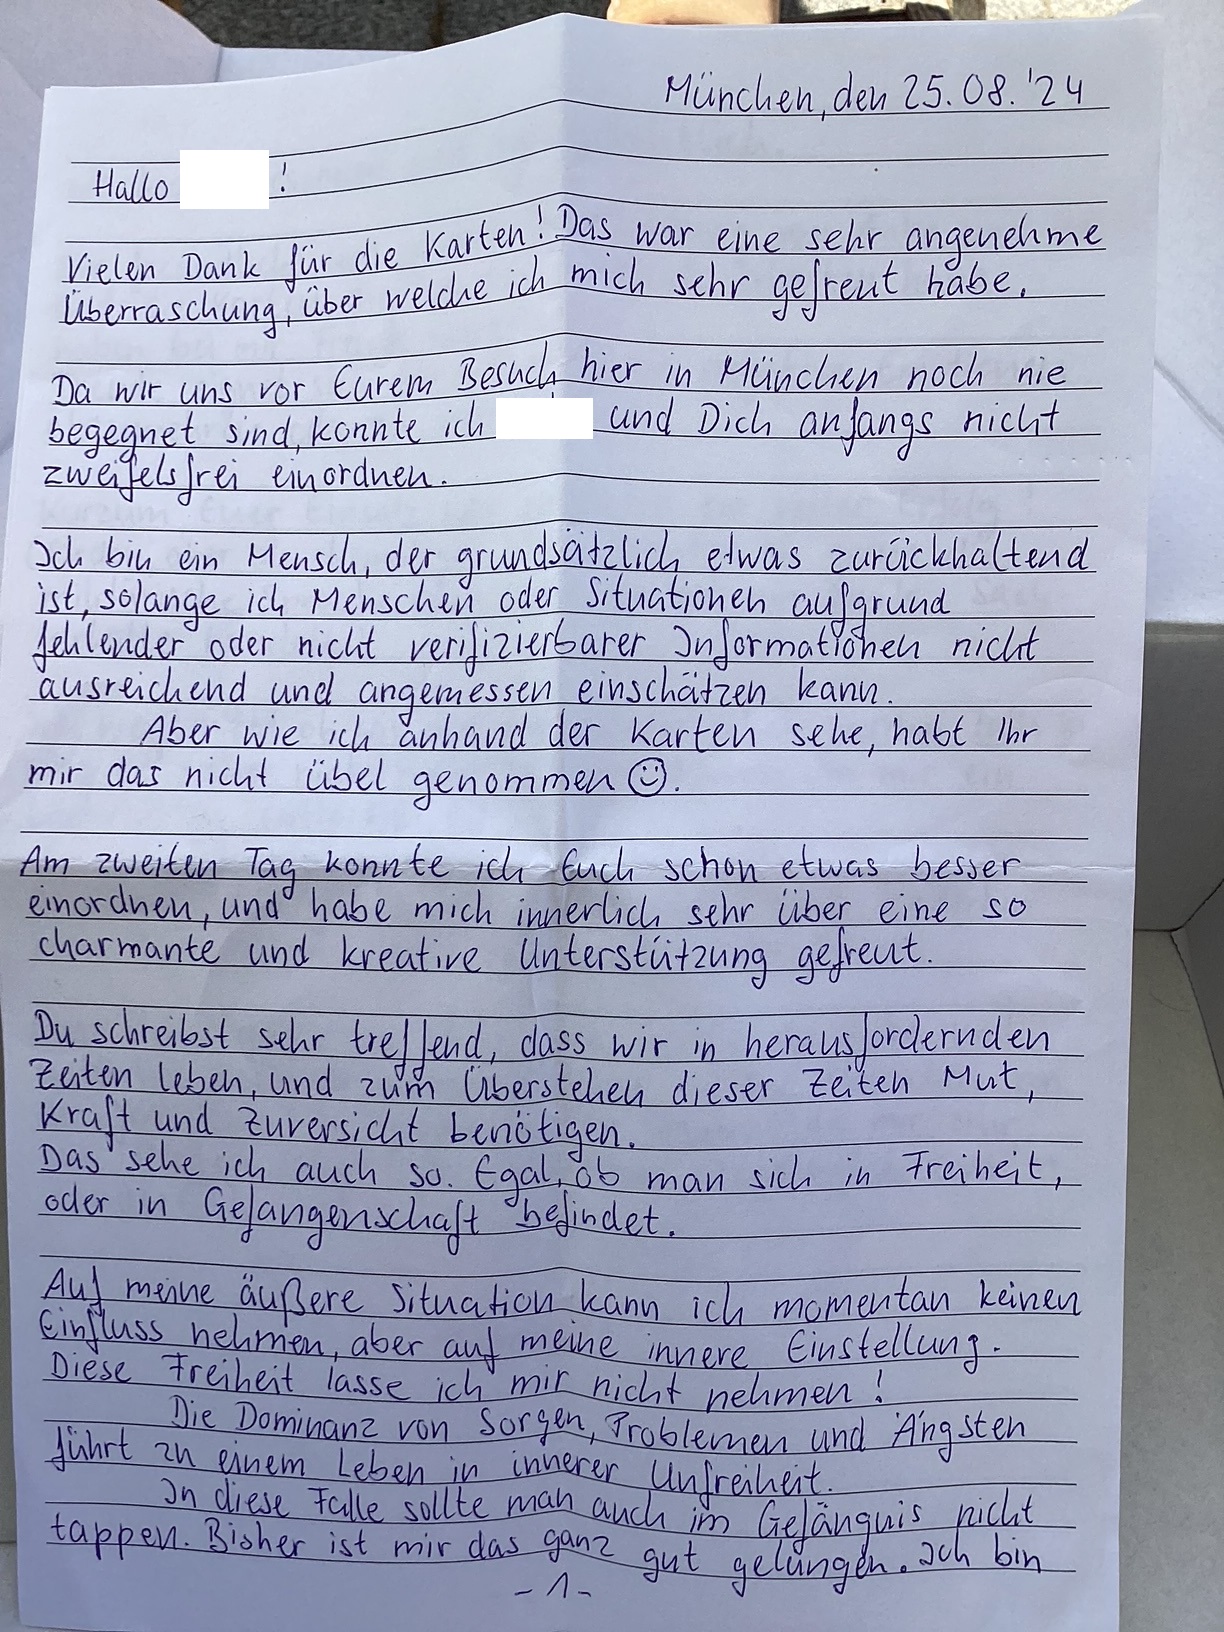 München, den 25.08.'24
Hallo !
Vielen Dank für die Karten! Das war eine sehr angenehme
Überraschung, über welche ich mich sehr gefreut habe.
Da wir uns vor Eurem Besuch hier in München noch nie
begegnet sind, konnte ich und Dich anfangs nicht
zweifelsfrei einordnen.
Ich bin ein Mensch, der grundsätzlich etwas zurückhaltend
ist, solange ich Menschen oder Situationen aufgrund
fehlender oder nicht verifizierbarer Informationen nicht
ausreichend und angemessen einschätzen kann.
Aber wie ich anhand der Karten sehe, habt Ihr
mir das nicht übel genommen ☺.
Am zweiten Tag konnte ich Euch schon etwas besser
einordnen, und habe mich innerlich sehr über eine so
charmante und kreative Unterstützung gefreut.
Du schreibst sehr treffend, dass wir in herausfordernden
Zeiten leben, und zum Überstehen dieser Zeiten Mut,
Kraft und Zuversicht benötigen.
Das sehe ich auch so. Egal, ob man sich in Freiheit,
oder in Gefangenschaft befindet.
Auf meine äußere Situation kann ich momentan keinen
Einfluss nehmen, aber auf meine innere Einstellung.
Diese Freiheit lasse ich mir nicht nehmen!
Die Dominanz von Sorgen, Problemen und Ängsten
führt zu einem Leben in innerer Unfreiheit.
In diese Falle sollte man auch im Gefängnis nicht
tappen. Bisher ist mir das ganz gut gelungen. Ich bin
- 1 -